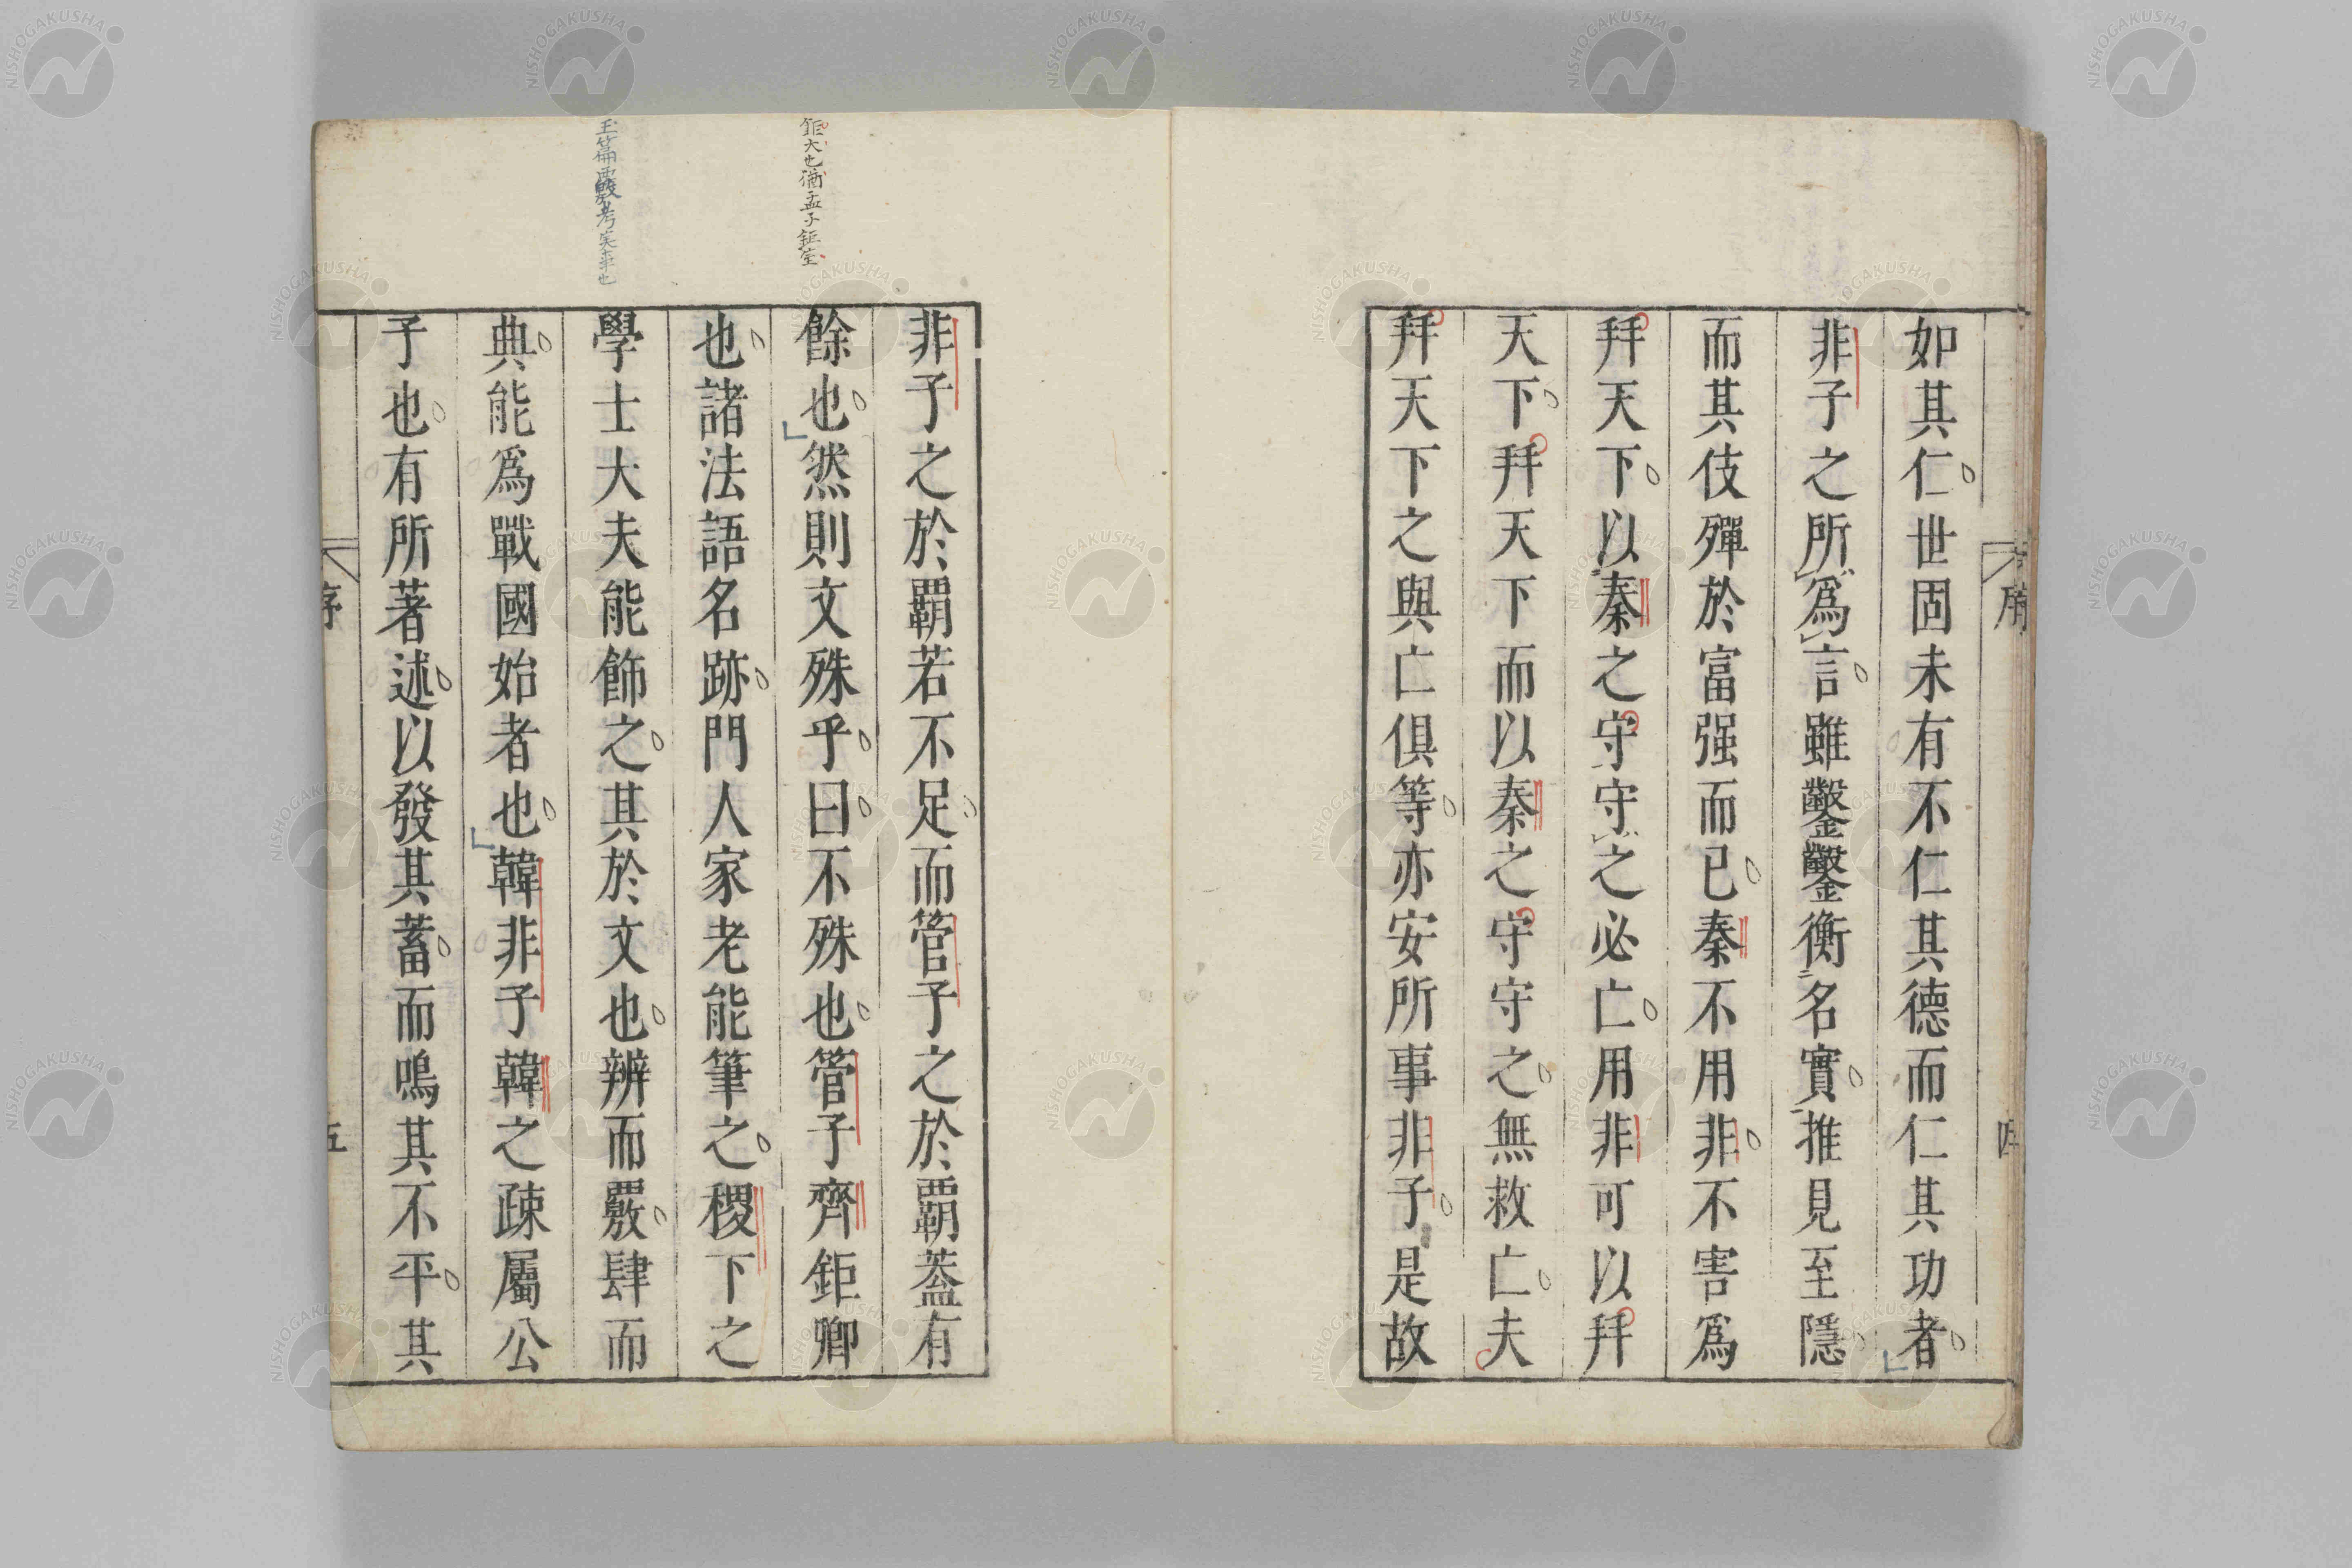 如其仁世固未有不仁其德而仁其功者
非子之所爲言雖鑿鑿衡名實推見至隱
而其伎殫於富强而已秦不用非不害爲
拜天下以秦之守守之必亡用非可以拜
天下拜天下而以秦之守守之無救亡夫
拜天下之與亡俱等亦安所事非子是故
序
四
鉅大也猶孟子鉅室
非子之於覇若不足而管子之於覇蓋有
餘也然則文殊乎曰不殊也管子齊鉅卿
也諸法語名跡門人家老能筆之稷下之
學士大夫能飾之其於文也辨而覈肆而
典能爲戰國始者也韓非子韓之疎屬公
子也有所著述以發其蓄而鳴其不平其
序
五
NISHOGAKUSHA